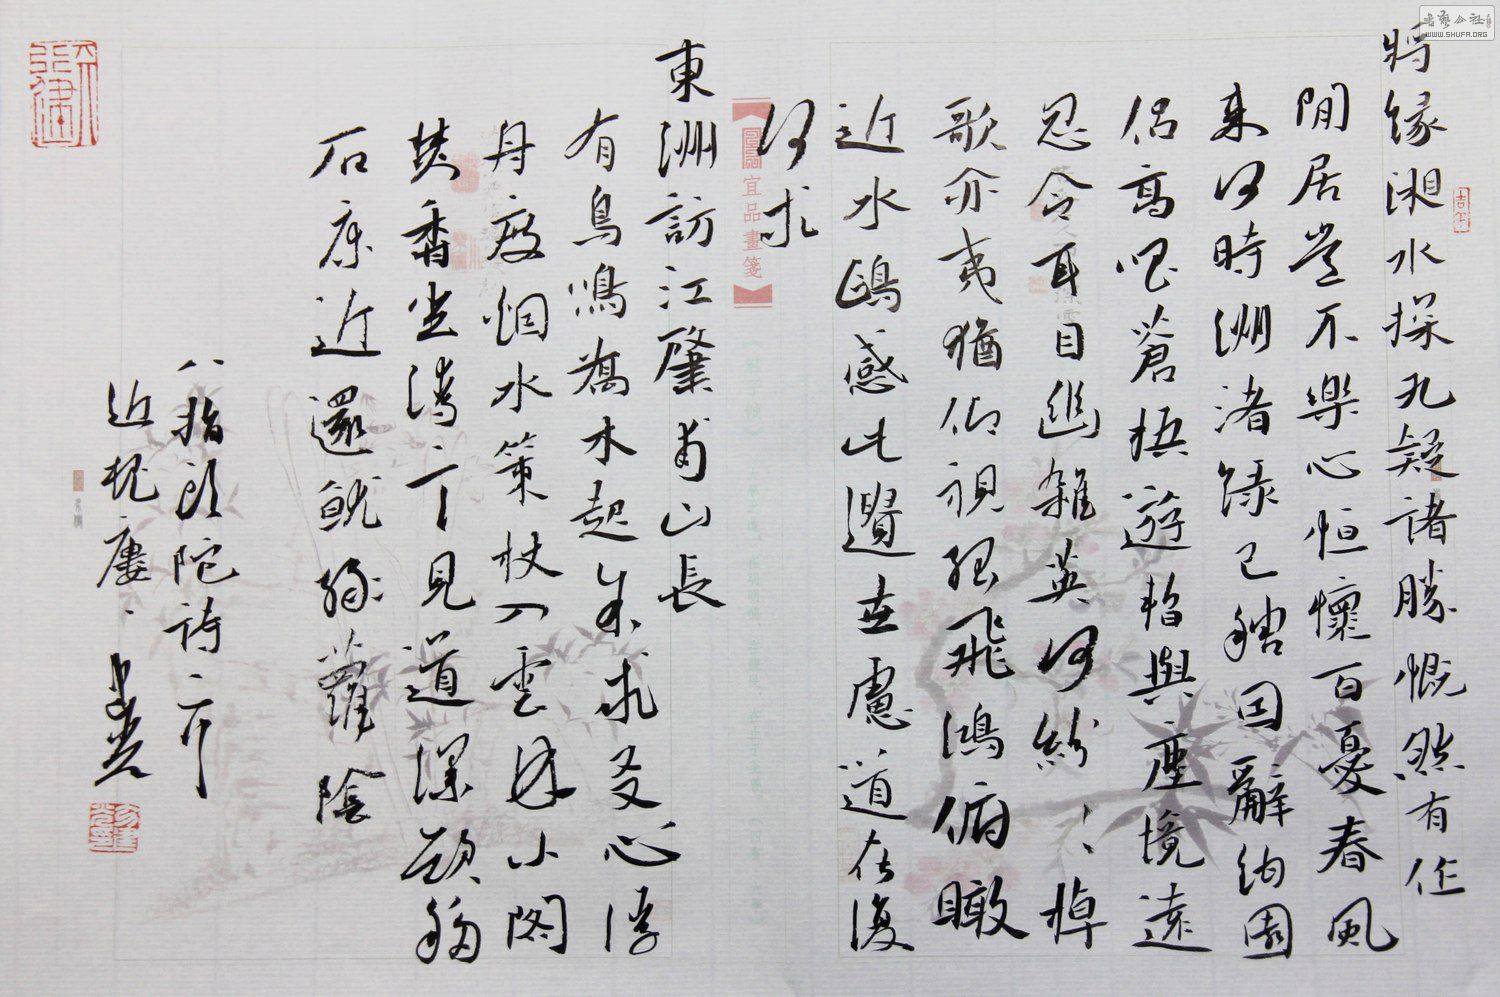 將緣湘水探九疑諸勝慨然有作
閒居不樂心恒懷百憂春風
來何時洲渚綠已稠因辭園
侶高唱蒼梧遊暫與塵境遠
忍令耳目幽雜英何紛〻棹
歌亦夷猶仰視孤飛鴻俯瞰
近水鷗感此遺世慮道在復
何求
宜品畫箋
東洲訪江肇甫山長
有鳥鳴喬木起來求友心浮
舟度烟水策杖入雲林小閣
焚香坐清言見道深欲移
石床近還就綠蘿陰
八指頭陀詩二首
書藝公社
WWW.SHUFA.ORG